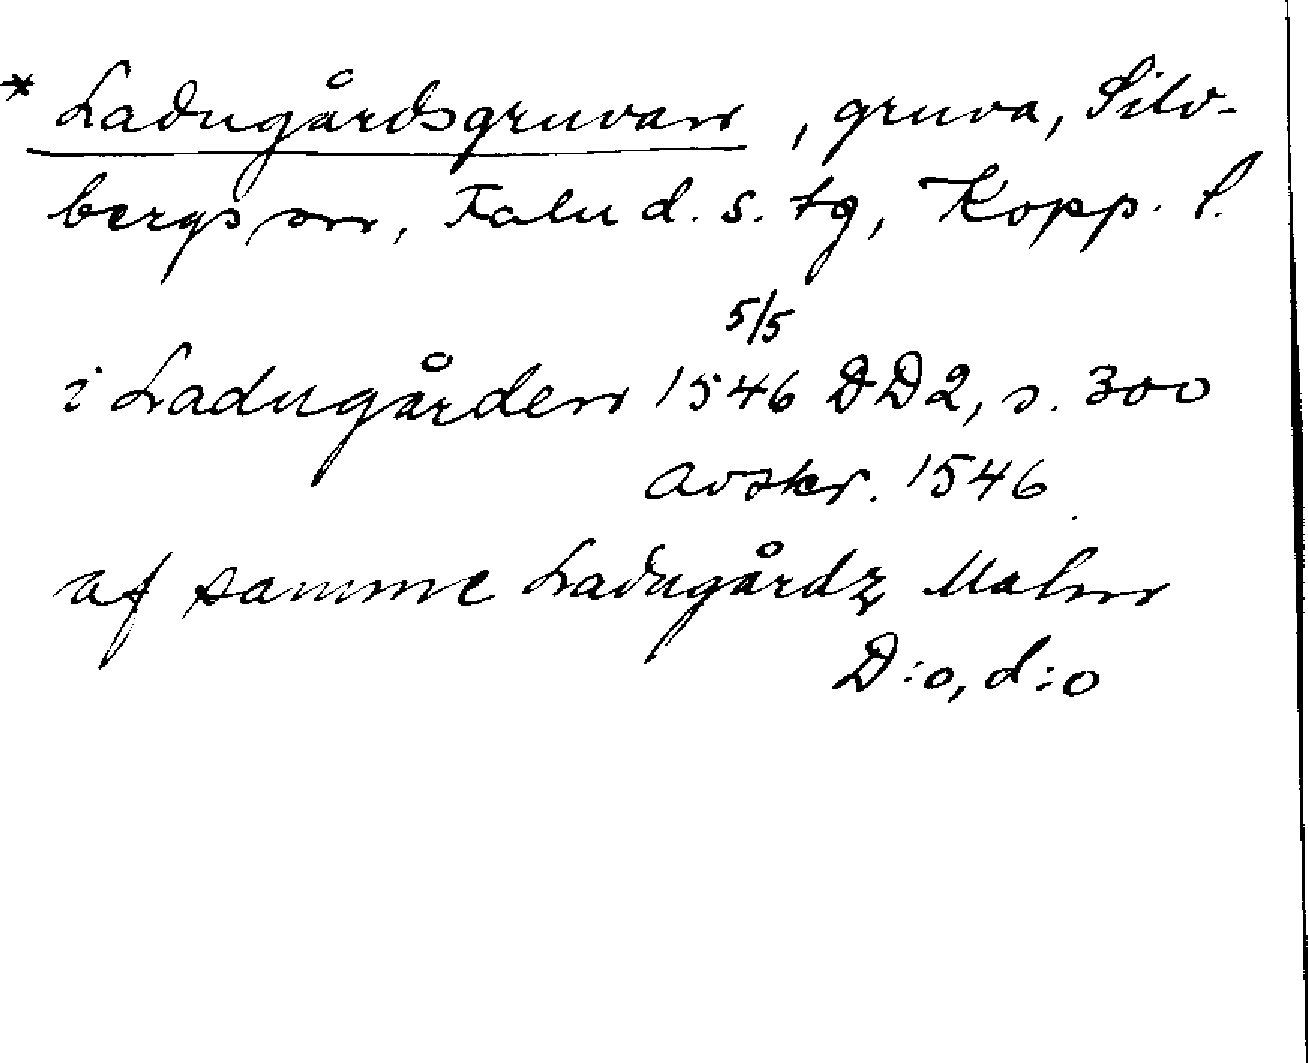 * Ladugårdsgruvan, gruva, Silv-
bergs sn, Falu d. s. tg, Kopp. l.
5/5
i Ladugården 1546 DD2, s. 300
avskr. 1546
af samme Ladugårdz Malm
D:o, d:o